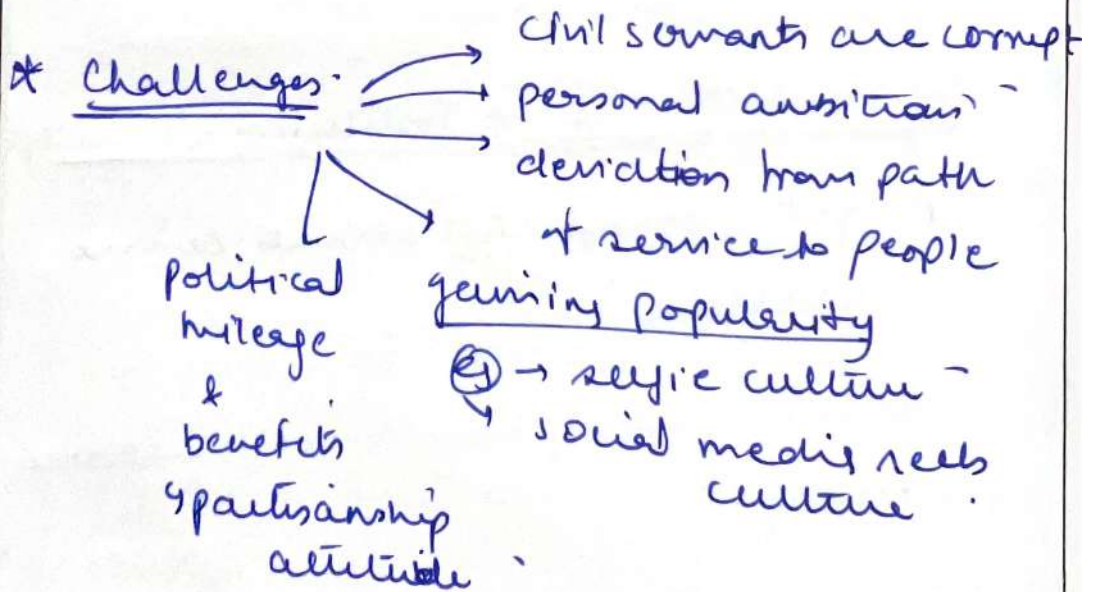 * Challenges.
civil servants are corrupt
personal ambitions
deviation from path
of service to people
gaining popularity
eg → selfie culture
social media reels
culture.
political
mileage
&
benefits
↳ partisanship
attitude